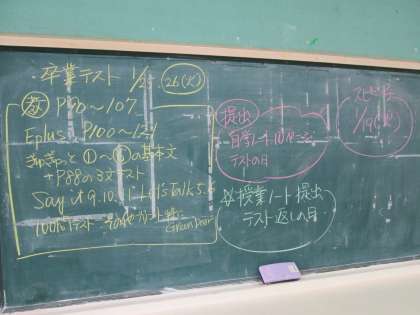 卒業テスト 1/25 26(火)
教 P90〜107
Eplus P100〜121
ぎゅぎゅっと ①〜 の基本文
+P88の3文テスト
Say it 9.10.11+Let's Talk 5.6
100問テスト
Green Door
提出
自学ノート10ページ
テストの日
授業ノート提出
テスト返しの日
1/19